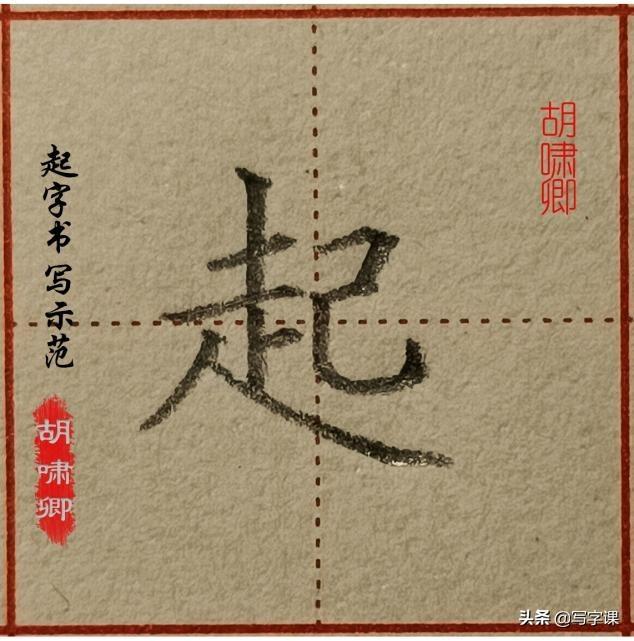 起
起字书写示范
胡啸卿
胡啸卿
头条 @写字课